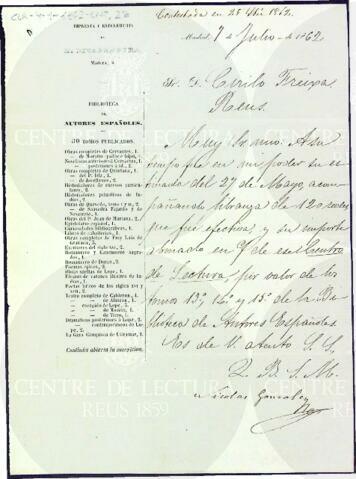 Contestada en 28 Mzo 1862.
IMPRENTA Y ESTEREOTIPIA
DE
M. RIVADENEYRA
Madera, 8
BIBLIOTECA
DE
AUTORES ESPAÑOLES.
50 TOMOS PUBLICADOS.
Obras completas de Cervantes, 1.
— de Moratin padre é hijo, 1.
Novelistas anteriores á Cervantes, 1.
— posteriores á id., 2.
Obras completas de Quintana, 1.
— del P. Isla, 1.
— de Jovellanos, 2.
Historiadores de sucesos particulares, 2.
Historiadores primitivos de Indias, 2.
Obras de Quevedo, tomos
— de Saavedra Fajardo y de Navarrete, 1.
Obras del P. Juan de Mariana, 2.
Epistolario español, 1.
Curiosidades bibliográficas, 1.
Libros de caballerías, 1.
Obras completas de Fray Luis de Granada, 3.
Escritores del siglo XVI, 2.
Romancero y Cancionero sagrados, 1.
Romancero de Duran, 2.
Poemas épicos, 2.
Obras sueltas de Lope, 1.
Elegías de varones ilustres de Indias, 1.
Poetas líricos de los siglos XVI y XVII, 2.
Teatro completo de Calderon, 4.
— de Alarcon, 1.
— escogido de Lope, 4.
— de Moreto, 1.
— de Tirso, 1.
Dramáticos posteriores á Lope, 2.
— contemporáneos de Lope, 2.
La Gran Conquista de Ultramar, 1.
Continúa abierta la suscricion.
Madrid, 7 de Julio de 1862
Sr. D. Cirilo Freixa
Reus.
Muy Sr. mio: A su
tiempo fue en mi poder su es-
timada del 27 de Mayo, acom-
pañando libranza de 120 reales
que fué efectiva, y su importe
abonado en de ese Centro
de Lectura por valor de los
tomos 13, 14 y 15 de la Bi-
blioteca de Autores Españoles
Es de V. atento S. S.
Q. B. S. M.
Nicolas Gonzalez
CENTRE DE LECTURA
REUS 1859